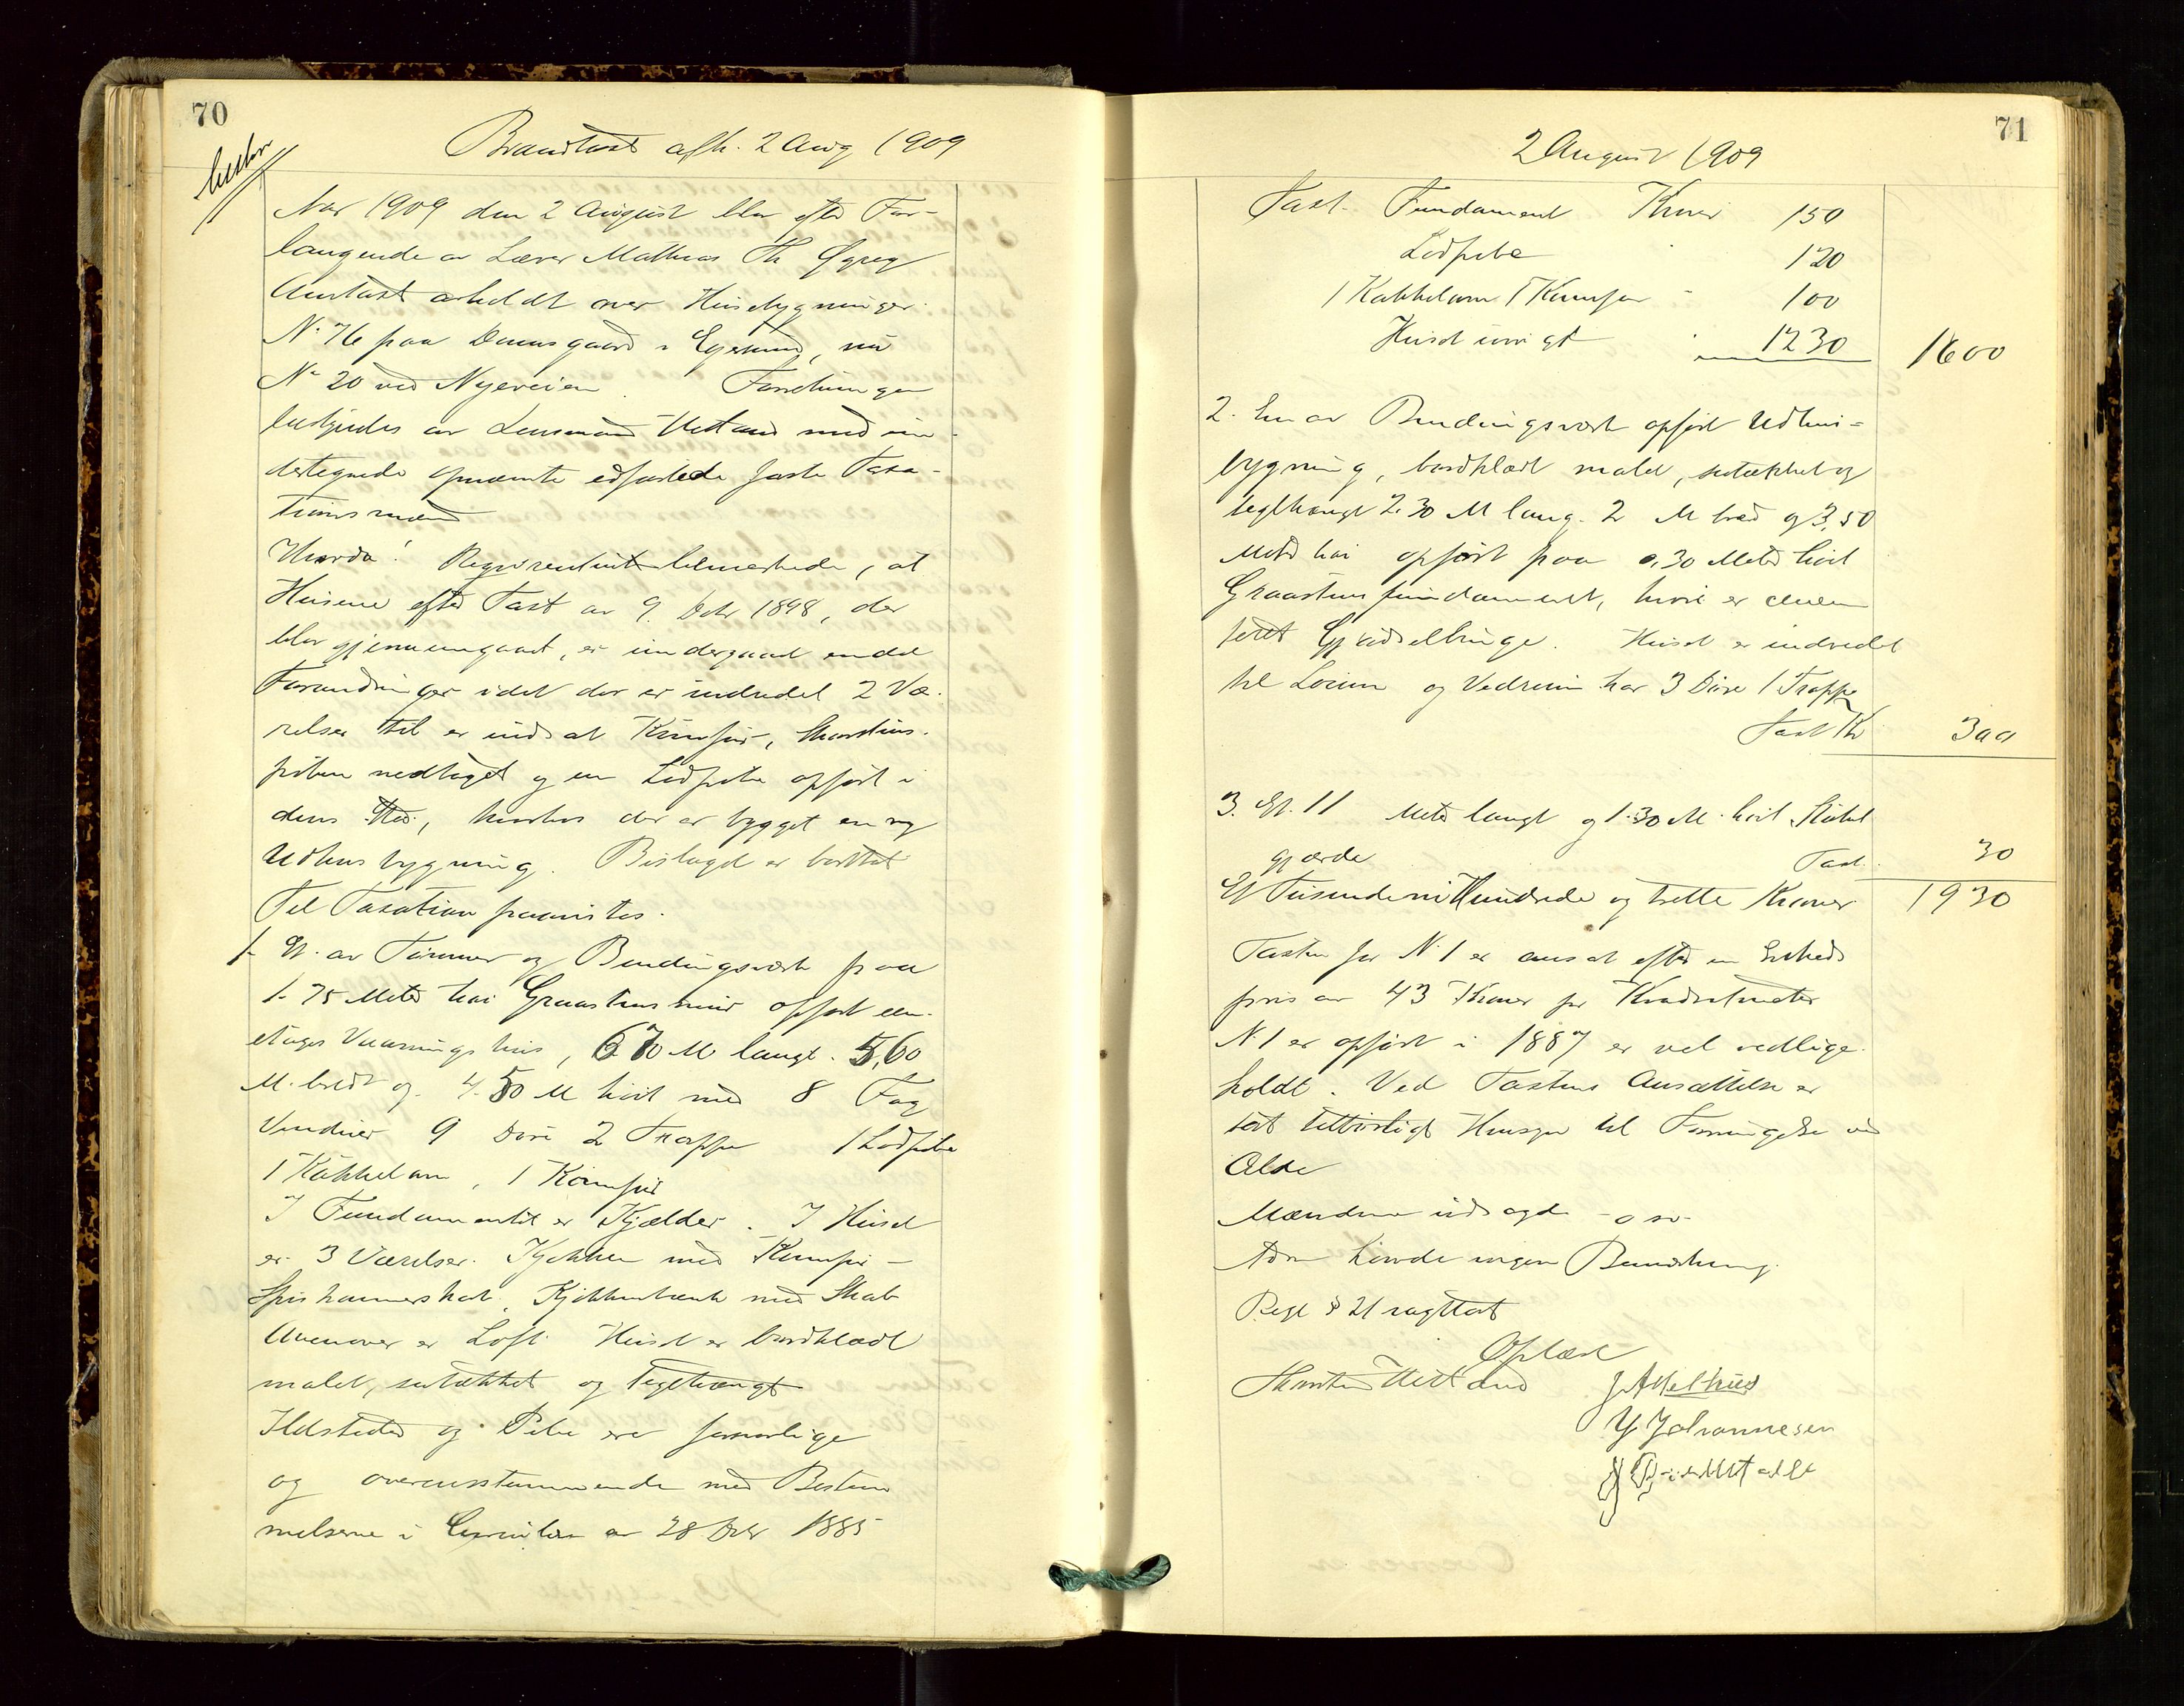 70
Brandtaxt afh. 2 Aug 1909
Aar 1909 den 2 August blev efter For-
langende av Lærer Mathias Th Egreg
Amtaxt avholdt over Husebygninger
No 76 paa Damsgaard i Egersund, nu
No 20 ved Nyeveien. Forretningen
betjentes av Lensmand Hetland med un-
dertegnede opnævnte edfæstede faste Taxa-
tionsmænd
Hvorda! Reqvirenten bemerkede, at
Husene efter Taxt av 9. Dcbr 1898, der
blev gjennemgaaet, er undergaaet endel
Forandringer idet der er indredet 2 Væ-
relser til er indsat Komfur, Skorstens-
piben nedtaget og en Lødpibe opført i
dens Sted, hvorhos der er bygget en ny
Udhusbygning. Bislaget er borttat
Til Taxation paavistes.
1. Et av Tømmer og Bindingsverk paa
1.75 Meter høi Graastensmur opført een-
etages Vaaningshus, 6.70 M langt. 5,60
M. bredt og 4.50 M høit med 8 Fag
Vinduer 9 Døre 2 Trappe 1 Lødpibe
1 Kakkelovn, 1 Komfur
I Fundamentet er Kjælder. I Huset
er 3 Værelser. Kjøkken med Komfur
Spiskammerskab, Kjøkkenbænk med Skab
Ovenover er Loft. Huset er bordklædt
malet, sutækket og teglhængt
Ildsteder og Pibe ere forsvarlige
og overensstemmende med Bestem
melserne i Circulære av 28 Dcbr 1885
71
2 August 1909
Taxt. Fundament Kroner 150
Lødpibe 120
1 Kakkelovn 1 Komfur 100
Huset øvrigt 1230 1600
2. En av Bindingsverk opført Udhus-
bygning, bordklædt malet, sutækket og
teglhængt 2.30 M lang. 2 M bred og 3,50
Meter høi opført paa 0,30 Meter høit
Graastensfundament, hvori er cemen
teret Gjødselbinge. Huset er indredet
til Locum og Vedrum har 3 Døre 1 Trappe
Taxt Kr 300
3. Et. 11 Meter langt og 1.30 M. høit Staket
gjærde Taxt. 30
Et Tusinde ni Hundrede og tretti Kroner 1930
Taxten for N. 1 er ansat efter en Enheds
pris av 43 Kroner pr Kvadratmeter
N. 1 er opført i 1887 er vel vedlige-
holdt. Ved Taxtens Ansættelse er
tat tilbørligt Hensyn til Forringelse ved
Ælde
Mændene udsagde - o sv-
havde ingen Bemerkning.
Regl § 21 iagttat
Oplæst
Hetland
Y Johannesen